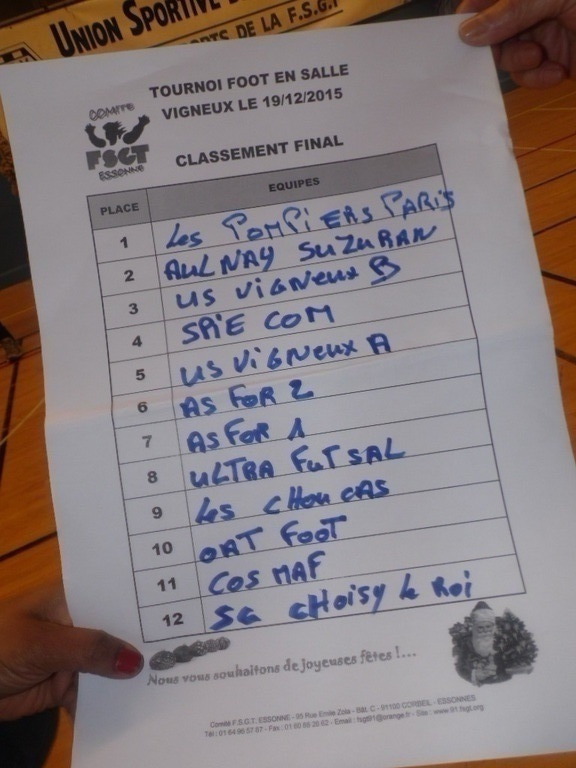 UNION SPORTIVE
DE LA F.S.G.T
TOURNOI FOOT EN SALLE
VIGNEUX LE 19/12/2015
COMITE
FSGT
ESSONNE
CLASSEMENT FINAL
PLACE EQUIPES
1 Les POMPIERS PARIS
2 AULNAY SUZURAN
3 US VIGNEUX B
4 SPIE COM
5 US VIGNEUX A
6 AS FOR 2
7 AS FOR 1
8 ULTRA FUTSAL
9 Les CHOUCAS
10 OAT FOOT
11 COSMAF
12 SG CHOISY le Roi
Nous vous souhaitons de joyeuses fêtes !...
Comité F.S.G.T. ESSONNE - 95 Rue Emile Zola - Bât. C - 91100 CORBEIL - ESSONNES
Tél : 01 64 96 57 87 - Fax : 01 60 88 26 62 - Email : fsgt91@orange.fr - Site : www.91.fsgt.org